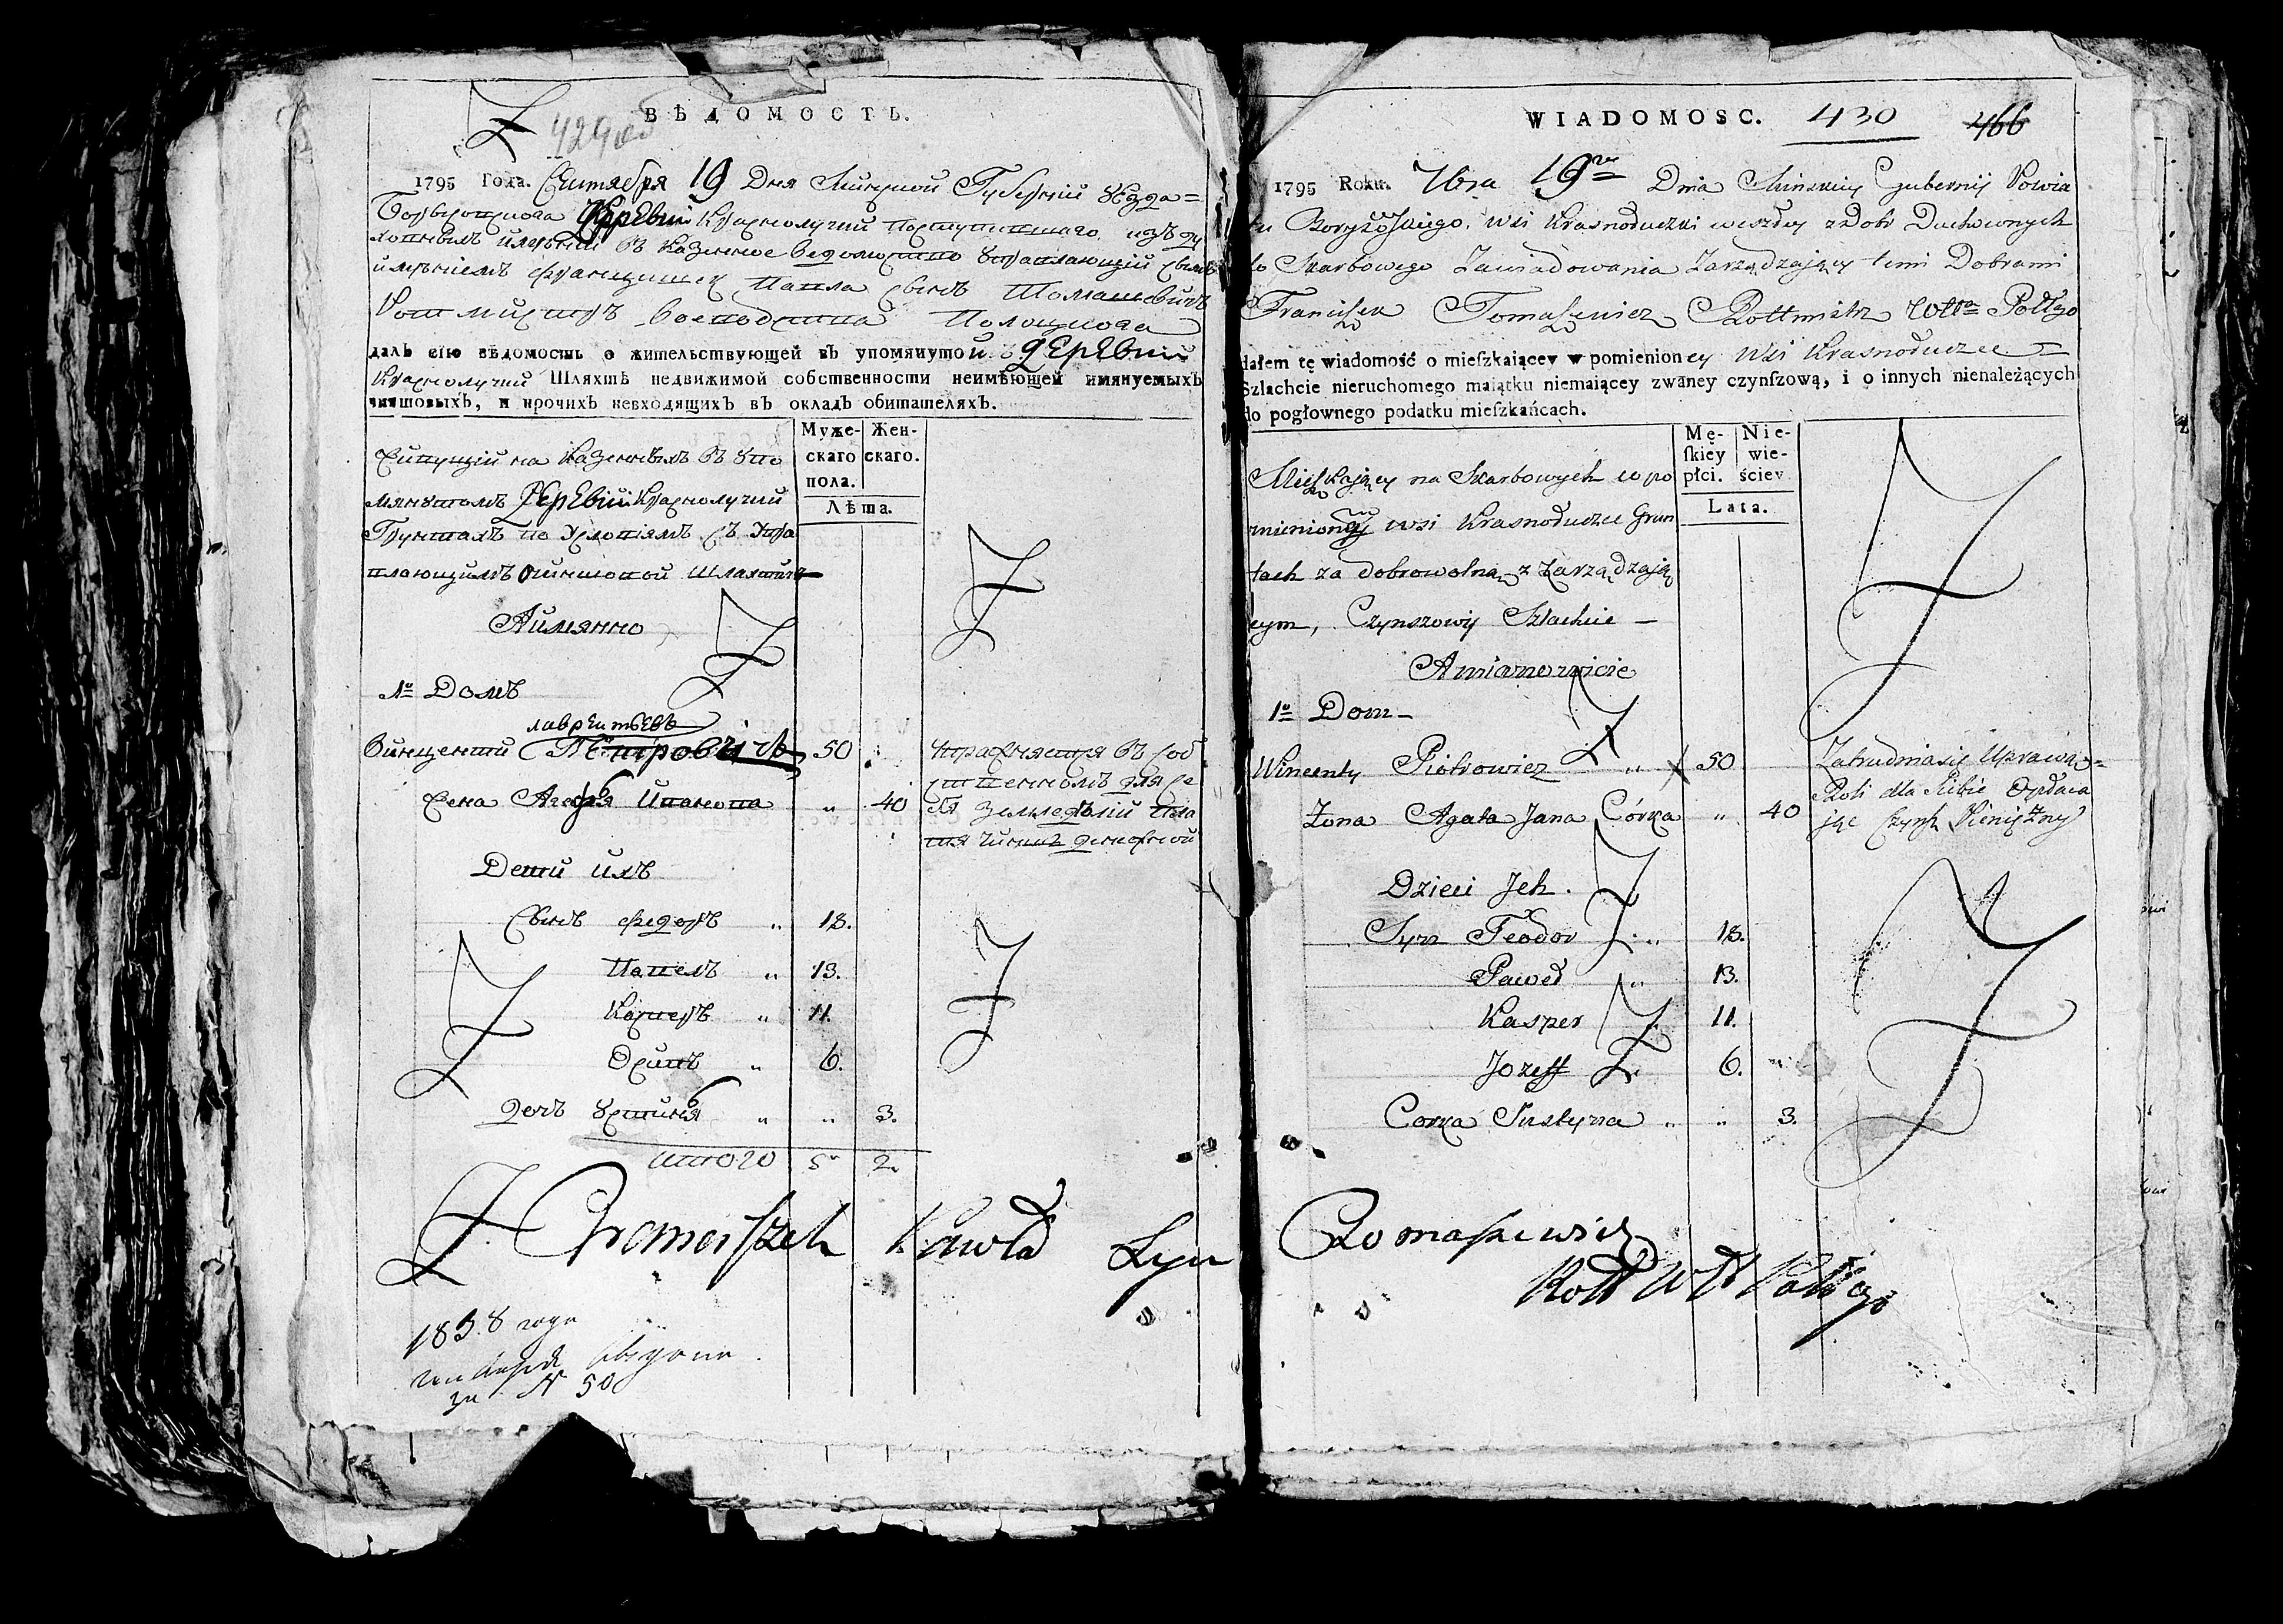 ВѢДОМОСТЬ.
1795 Года. Сентября 19 Дня Минской Губерніи уезда
Борисовского деревни Красполучки поступившаго изъ ду
ховныхъ имѣній въ Казенное ведомство управляющій симъ
имѣніемъ Францишек Павла сынъ Томашевичъ
Ротмистръ Воеводства Полоцкого
далъ сію вѣдомость о жительствующей въ упомянутой деревни
Шляхтѣ недвижимой собственности неимѣющей имянуемыхъ
чиншовыхъ, и прочихъ невходящихъ въ окладъ обитателяхъ.
Муже-
скаго
пола.
Жен-
скаго.
Лѣта.
на Казенныхъ въ упо
мянутомъ деревни
Грунтахъ по Условіямъ съ упра
вляющимъ чиншовой шляхтичъ
Аимянно
1о Домъ
лаврентьевъ
Винцентій Петровичъ 50
упражняется въ соб
ственномъ для се
бя земледѣлій пла
тя чиншъ денежной
Жена Агафья Иванова " 40
Дети ихъ
Сынъ Федоръ " 18.
Павелъ " 13.
Каспе­ръ " 11.
Осипъ " 6.
дочь Устинья " " 3.
итого 5 2.
Franciszek Pawła Syn
1838 года
выдана
за N 50
WIADOMOSC. 430 466
1795 Roku. 7bra 19 Dnia Minskiey Gubernij Powia
tu Boryzowskiego, wsi Krasnoduczki weszłey z Dobr Duchownych
do Skarbowego Zawiadowania Zarządzaiący temi Dobrami
Franciszek Tomaszewicz Rottmistrz Wttwa Połłgo
dałem tę wiadomość o mieſzkaiącey w pomienioney Wsi Krasnoduczce
Szlachcie nieruchomego maiątku niemaiącey zwaney czynſzową, i o innych nienależących
do pogłownego podatku mieſzkańcach.
Mę-
ſkiey
płci.
Nie-
wie-
ściey
Lata.
Mieszkający na Skarbowych w po
mienioney wsi Krasnoduczce Grun
tach za dobrowolną z Zarządzają
cym, Czynszowy Szlachcic
Amianowicie
1o Dom
Wincenty Piotrowicz " 50
Zatrudnia się Uprawą
Roli dla siebie Opłaca
jąc Czynsz Pieniężny
Zona Agata Jana Córka " 40
Dzieci Jch.
Syn Teodor " 18.
Paweł " 13.
Kasper 11.
Jozeff 6.
Corka Justyna " " 3.
Tomaszewicz
Rott Wtt Połłgo